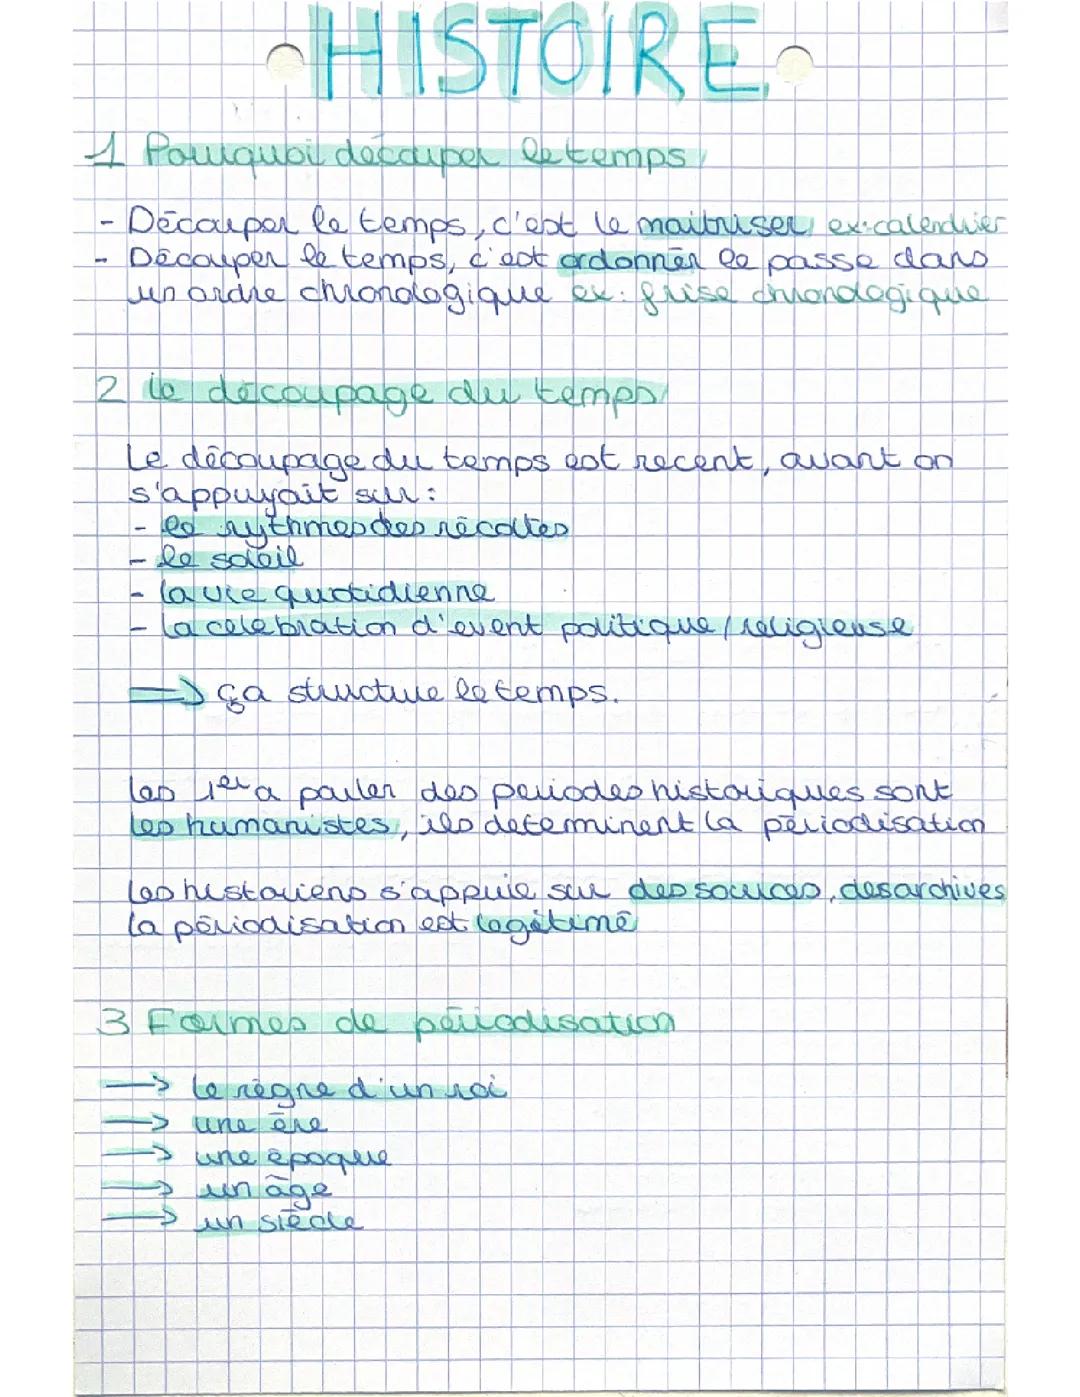 HISTOIRE
1 Pourquoi découper le temps
- Découper le temps, c'est le maitriser ex: calendrier
- Découper le temps, c'est ordonner le passé dans
un ordre chronologique ex: frise chronologique
2 le découpage du temps
Le découpage du temps est recent, avant on
s'appuyait sur :
- les rythmes des récoltes
- le soleil
- la vie quotidienne
- la celebration d'event politique / religieuse
→ ça structure le temps.
les 1er a parler des periodes historiques sont
les humanistes, ils determinent la périodisation
les historiens s'appuie sur des sources, des archives
la périodisation est légitimé
3 Formes de périodisation
→ le règne d'un roi
→ une ère
→ une époque
→ un âge
→ un siècle